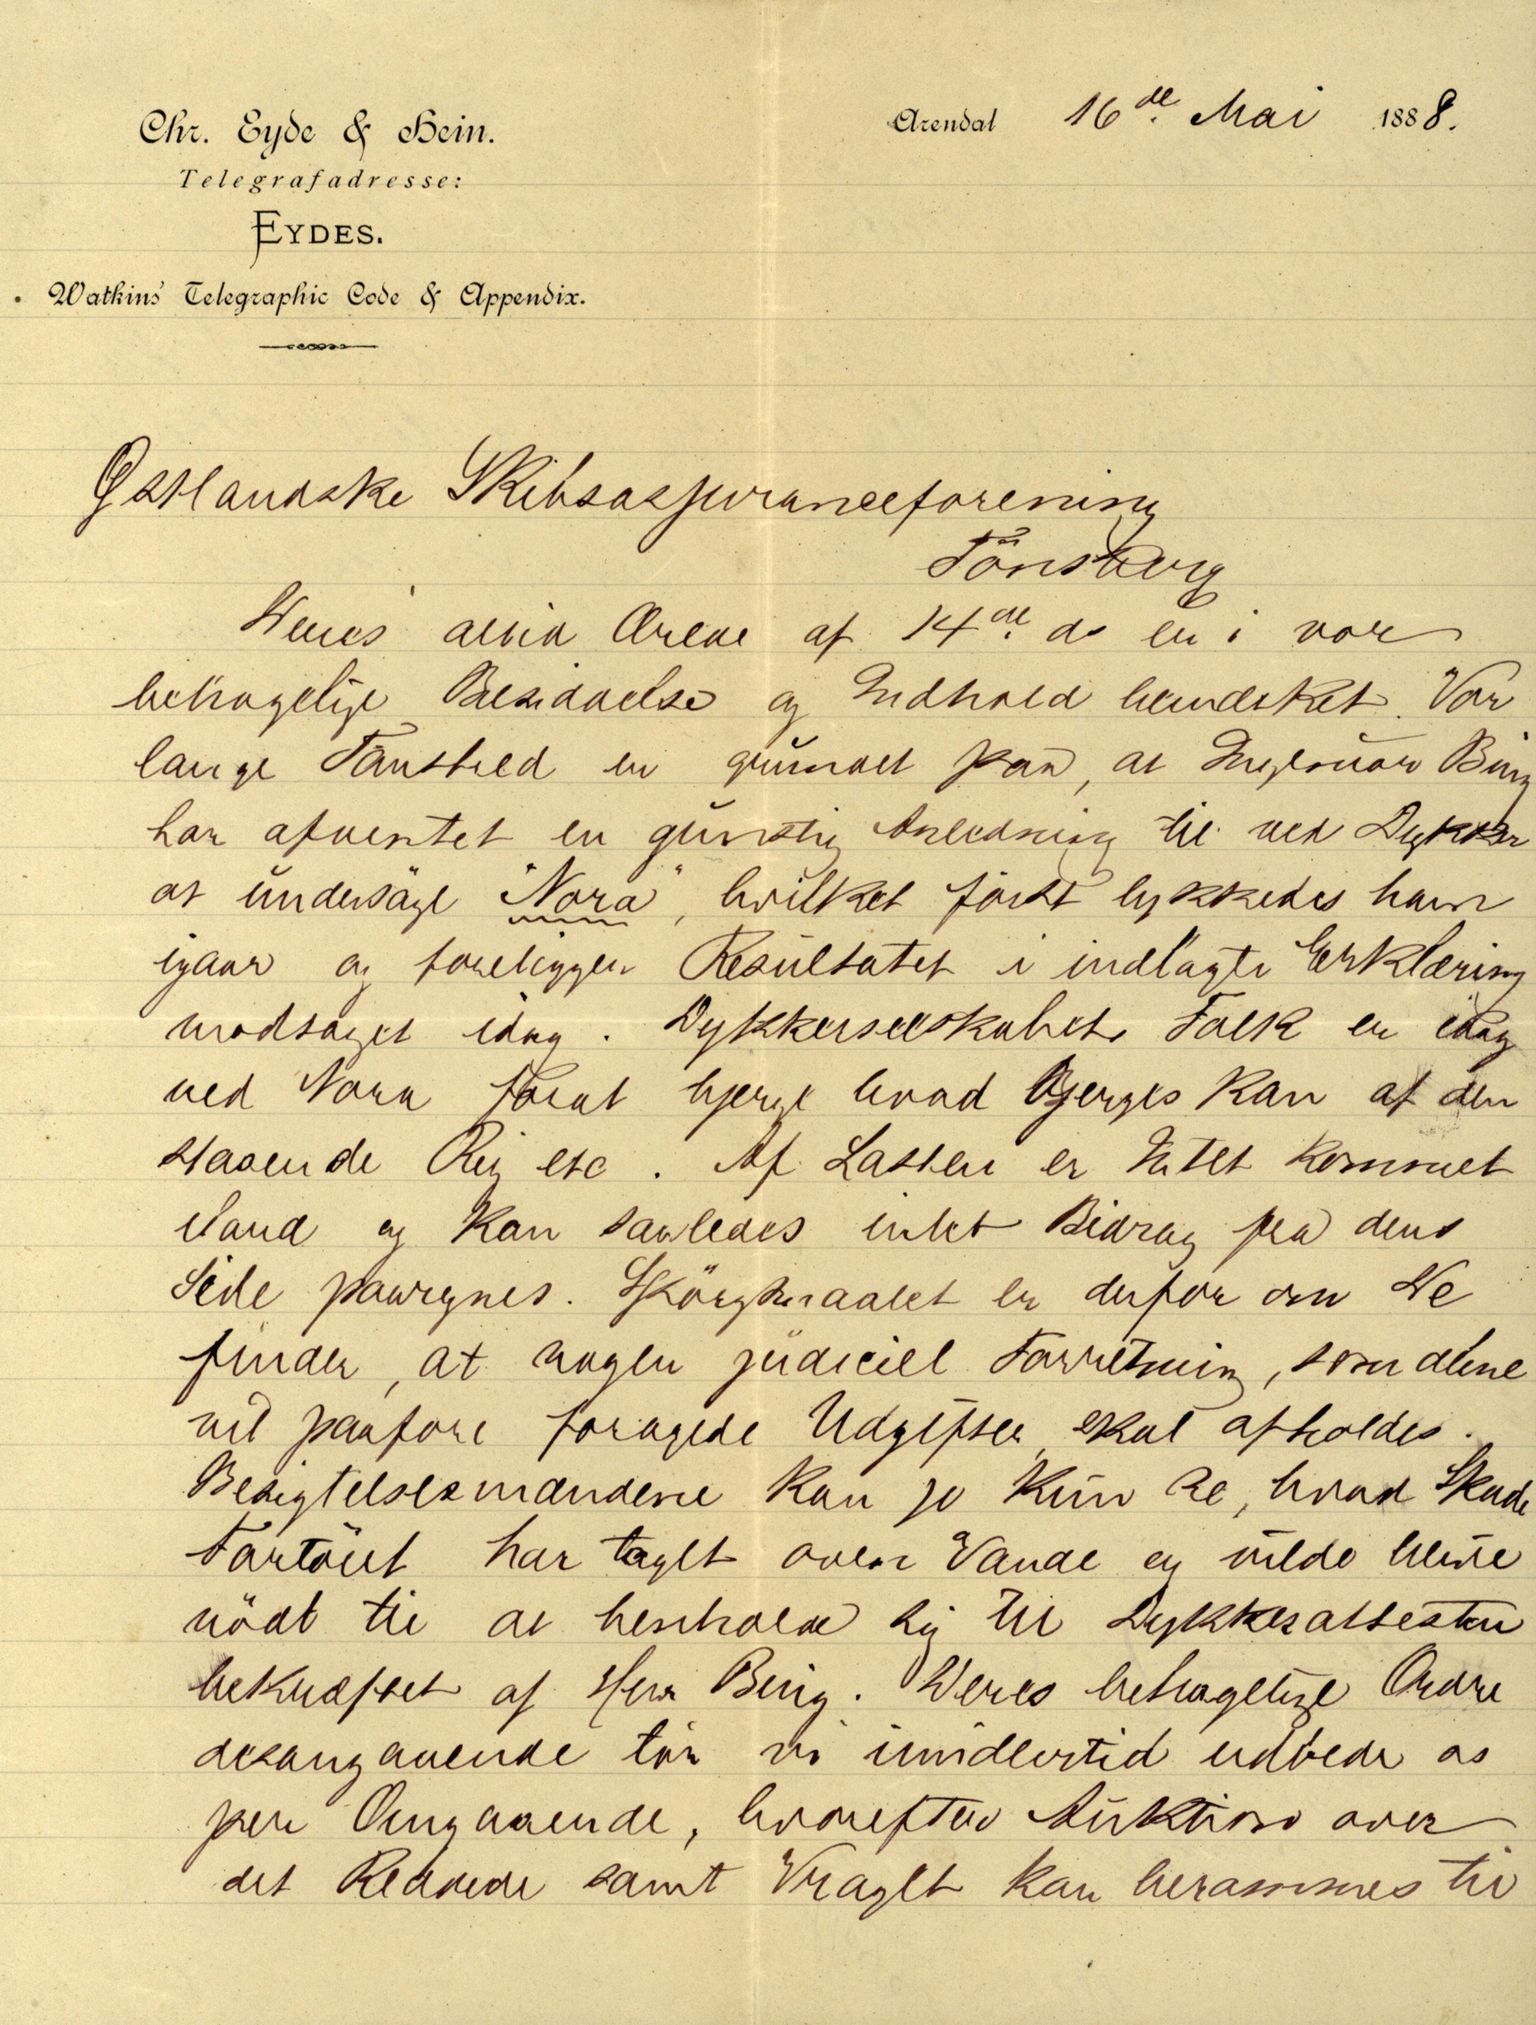 Chr. Eyde & Hein.
Telegrafadresse:
EYDES.
Watkins' Telegraphic Code & Appendix.
Arendal 16de Mai 1888.
Østlandske Skibsassuranceforening
Tönsberg
Deres ærede af 14de ds er i vor
behagelige Besiddelse og Indhold bemærket. Vor
lange Taushed er grundet paa, at Ingeniör Bing
har afventet en gunstig Anledning til ved Dykker
at undersöge "Nora", hvilket först lykkedes ham
igaar og foreligger Resultatet i indlagte Erklæring
modtaget idag. Dykkerselskabets Folk er idag
ved Nora forat bjerge hvad bjerges kan af den
staaende Rig etc. Af Lasten er Intet kommet
iland og kan saaledes intet Bidrag fra dens
Side paaregnes. Spörgsmaalet er derfor om De
finder, at nogen judiciel Forretning, som alene
vil paaföre forögede Udgifter, skal afholdes.
Besigtelsesmændene kan jo kun se, hvad Skade
Fartöiet har taget over Vande og vilde blive
nödt til at henholde sig til Dykkerattesten
bekræftet af Herr Bing. Deres behagelige Ordre
desangaaende tör vi imidlertid udbede os
per Omgaaende, hvorefter Auktion over
det Reddede samt Vraget kan berammes til